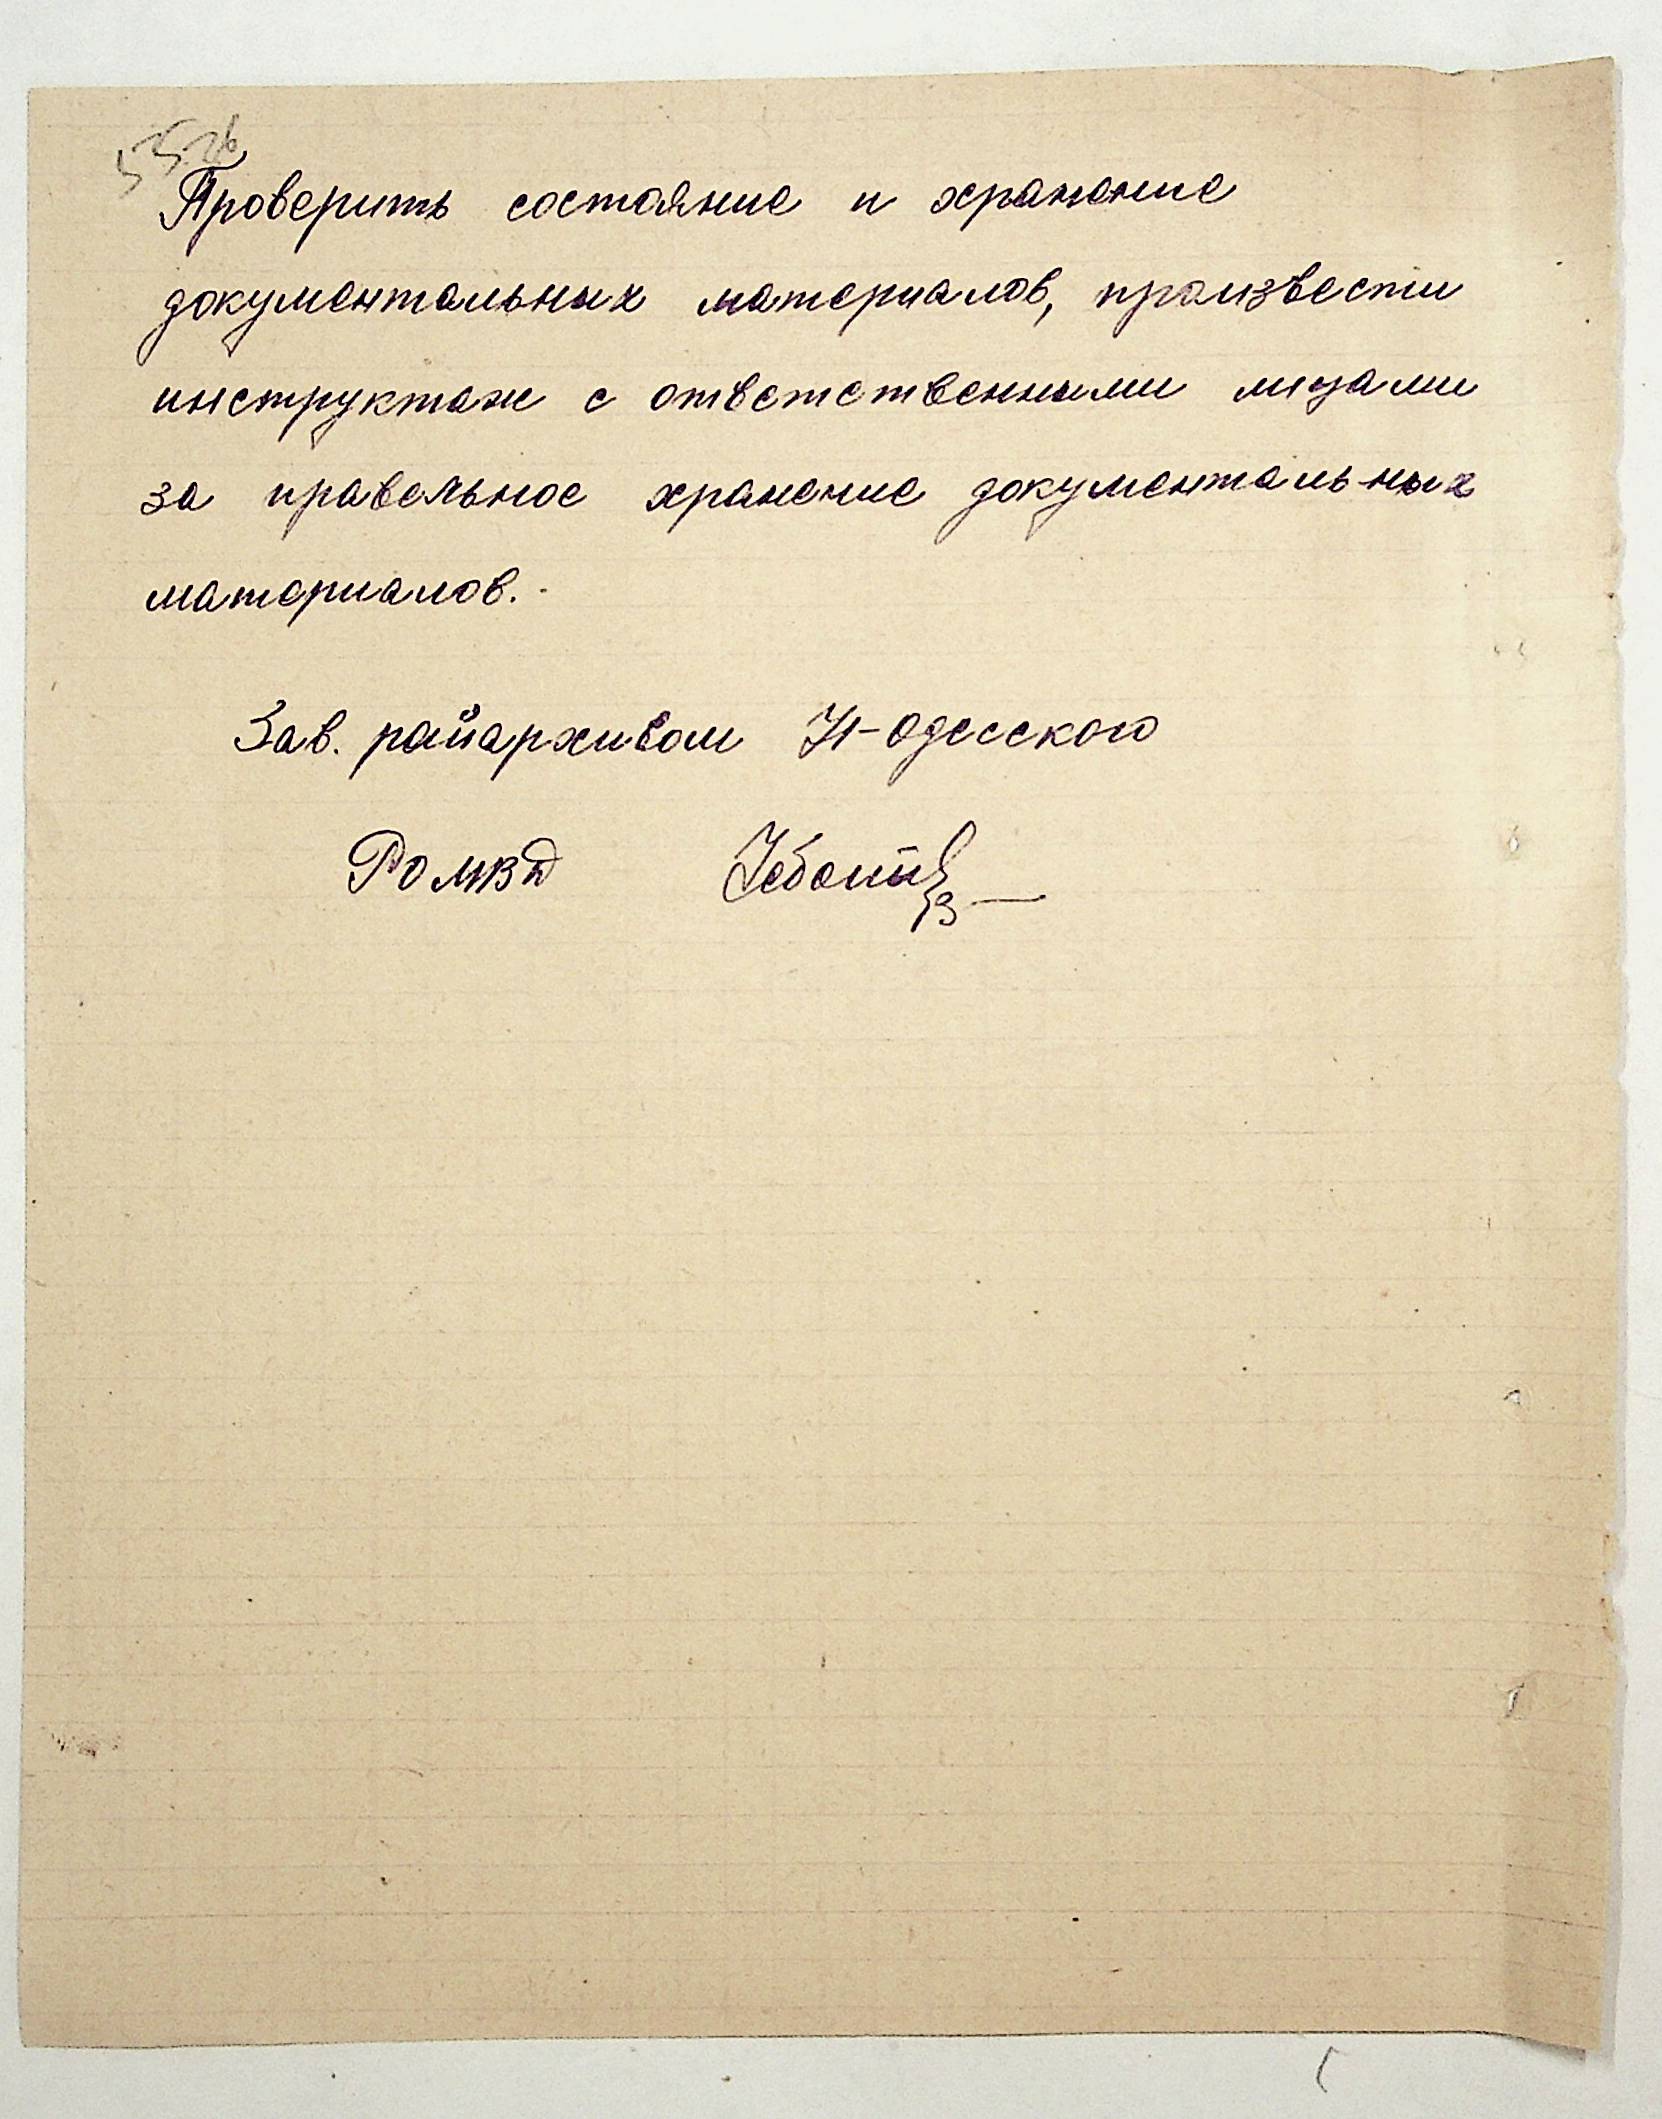 Проверить состояние и хранение
документальных материалов, произвести
инструктаж с ответственными лицами
за правельное хранение документальных
материалов.
Зав. райархивом Н-Одесского
РО МВД